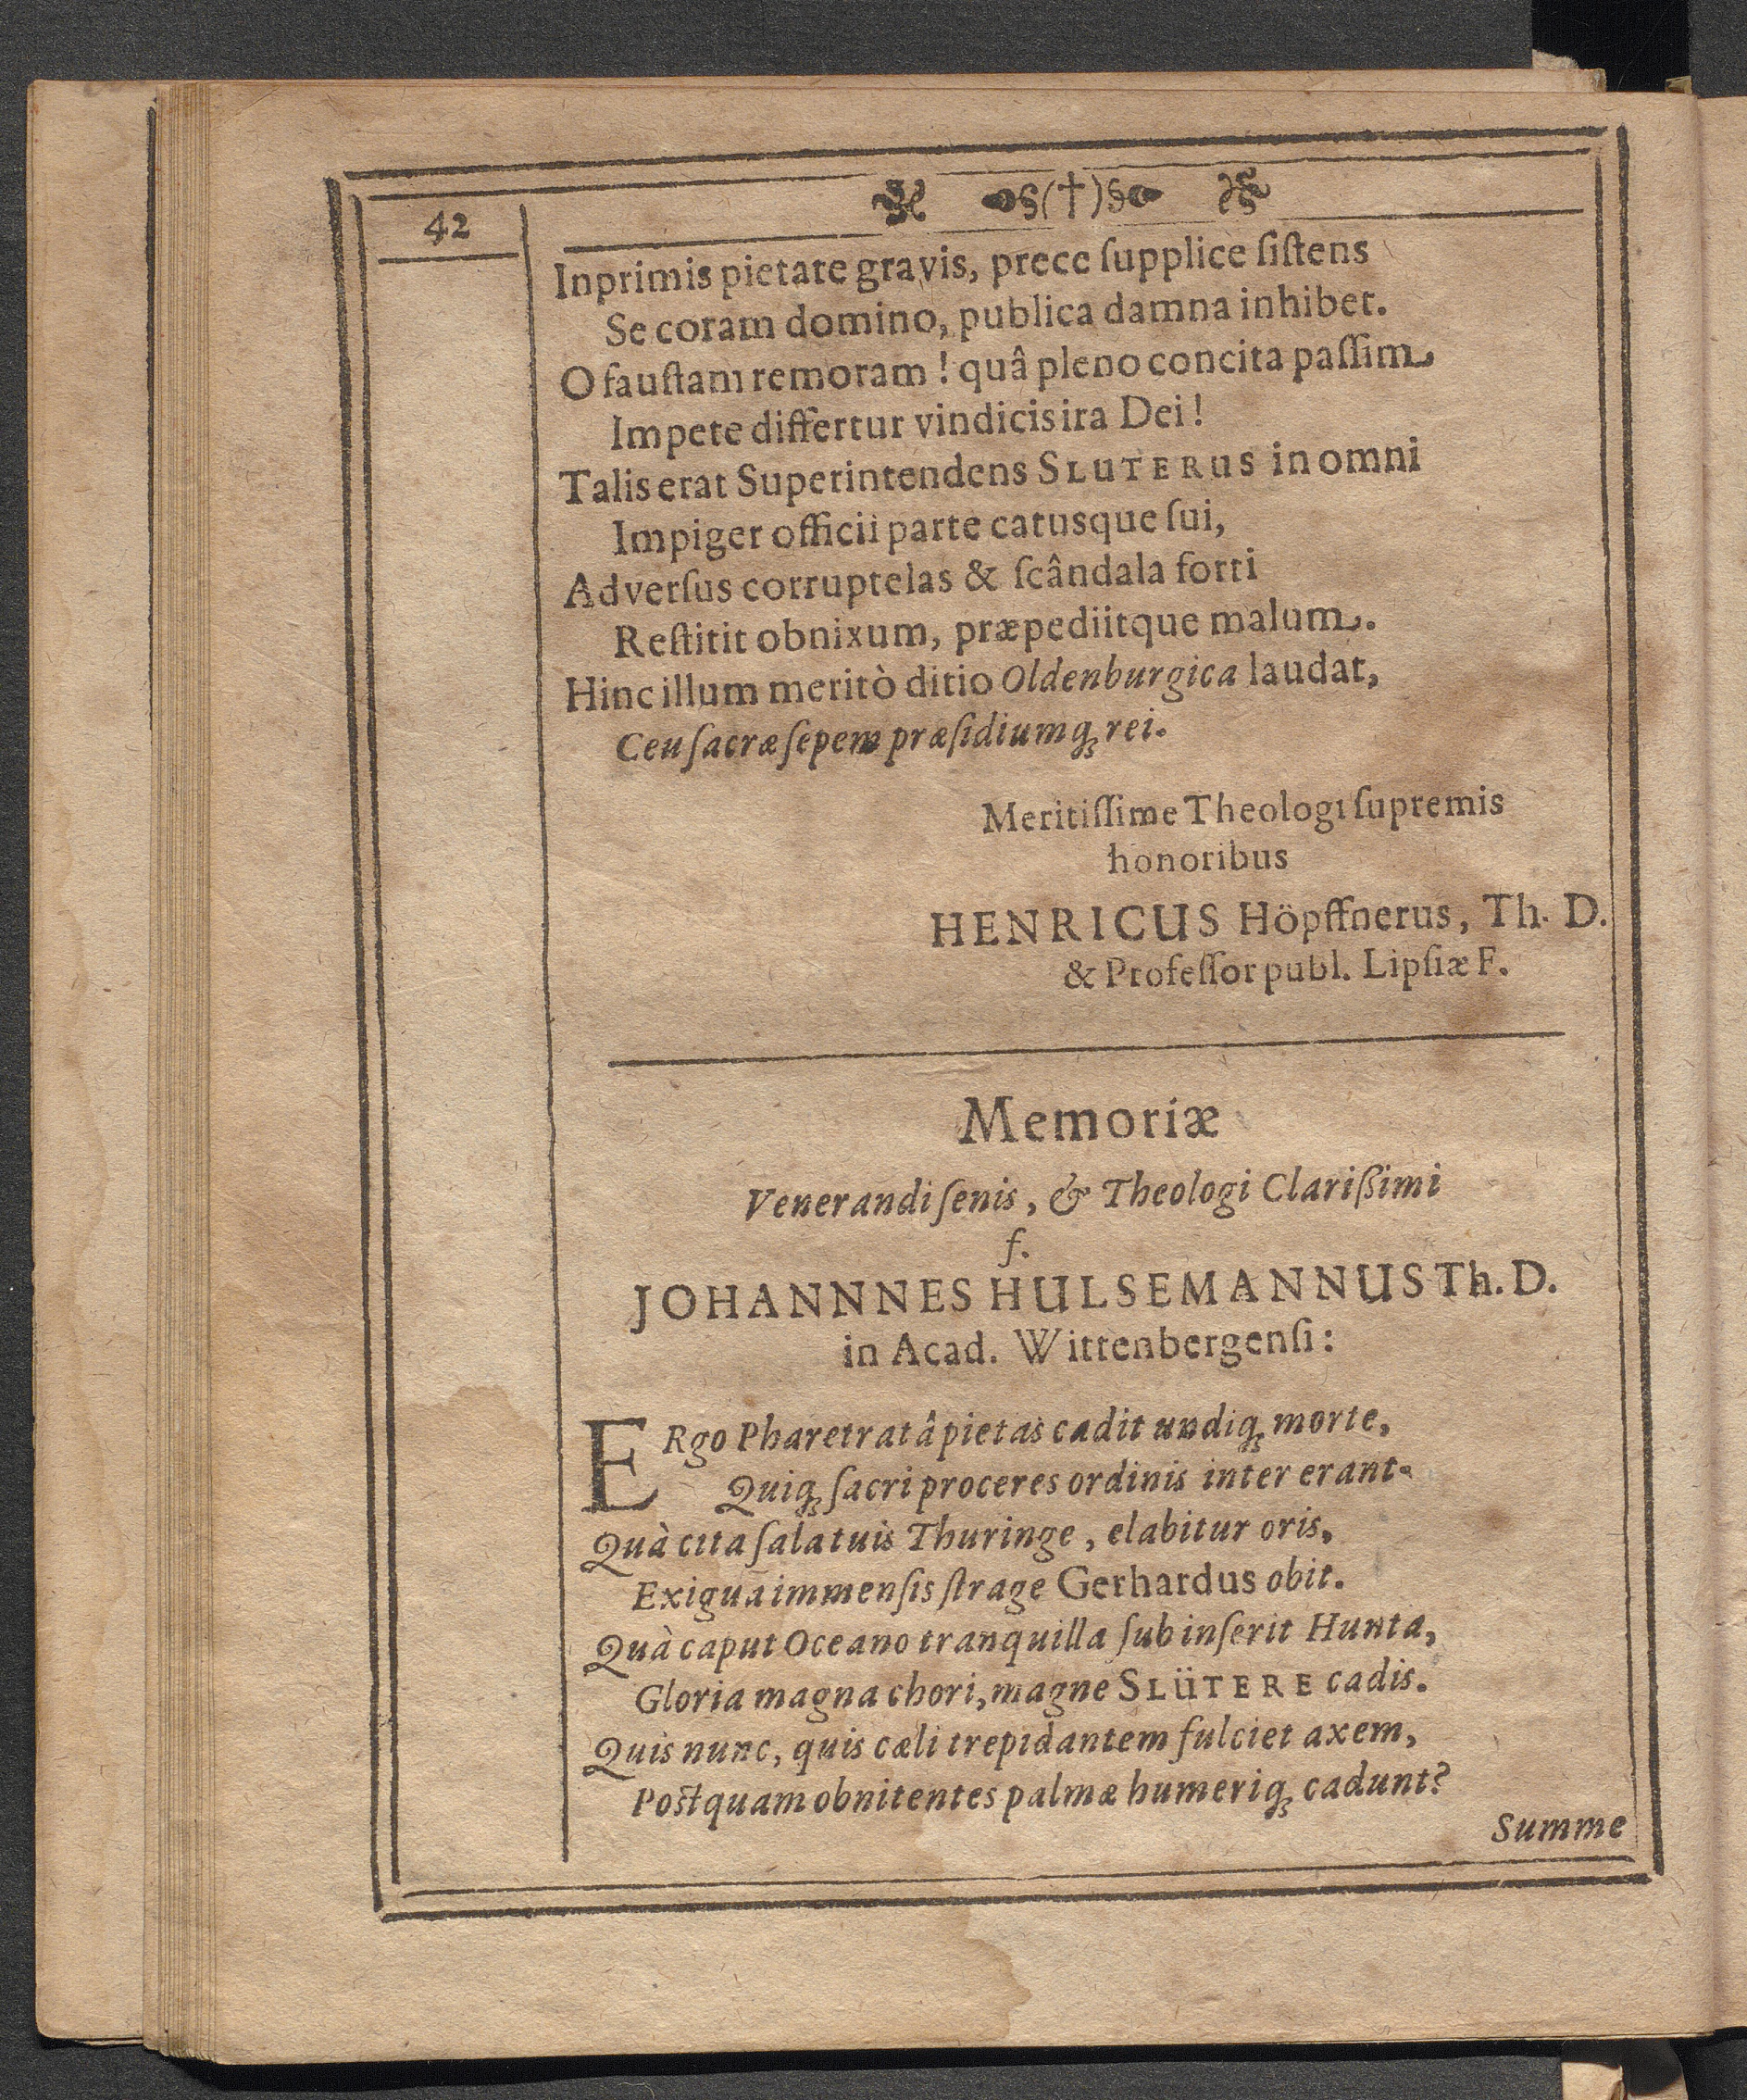 42
§(†)§
Inprimis pietate gravis, prece ſupplice ſiſtens
Se coram domino, publica damna inhibet.
O fauſtam remoram! quâ pleno concita paſſim
Impete differtur vindicis ira Dei!
Talis erat Superintendens SLUTERUS in omni
Impiger officii parte catusque ſui,
Adverſus corruptelas & ſcândala forti
Reſtitit obnixum, præpediitque malum.
Hinc illum meritò ditio Oldenburgica laudat,
Ceu ſacræ ſepem præſidiumq́; rei.
Meritiſſime Theologi ſupremis
honoribus
HENRICUS Höpffnerus, Th. D.
& Profeſſor publ. Lipſiæ F.
Memoriæ
Venerandi ſenis, & Theologi Clarißimi
f.
JOHANNNES HULSEMANNUS Th. D.
in Acad. Wittenbergenſi:
ERgo Pharetratâ pietas cadit undiq; morte,
Quiq; ſacri proceres ordinis inter erant.
Quà cita ſala tuis Thuringe, elabitur oris,
Exiguâ immenſis ſtrage Gerhardus obit.
Quà caput Oceano tranquilla ſubinſerit Hunta,
Gloria magna chori, magne SLÜTERE cadis.
Quis nunc, quis cæli trepidantem fulciet axem,
Poſtquam obnitentes palmæ humeriq; cadunt?
Summe